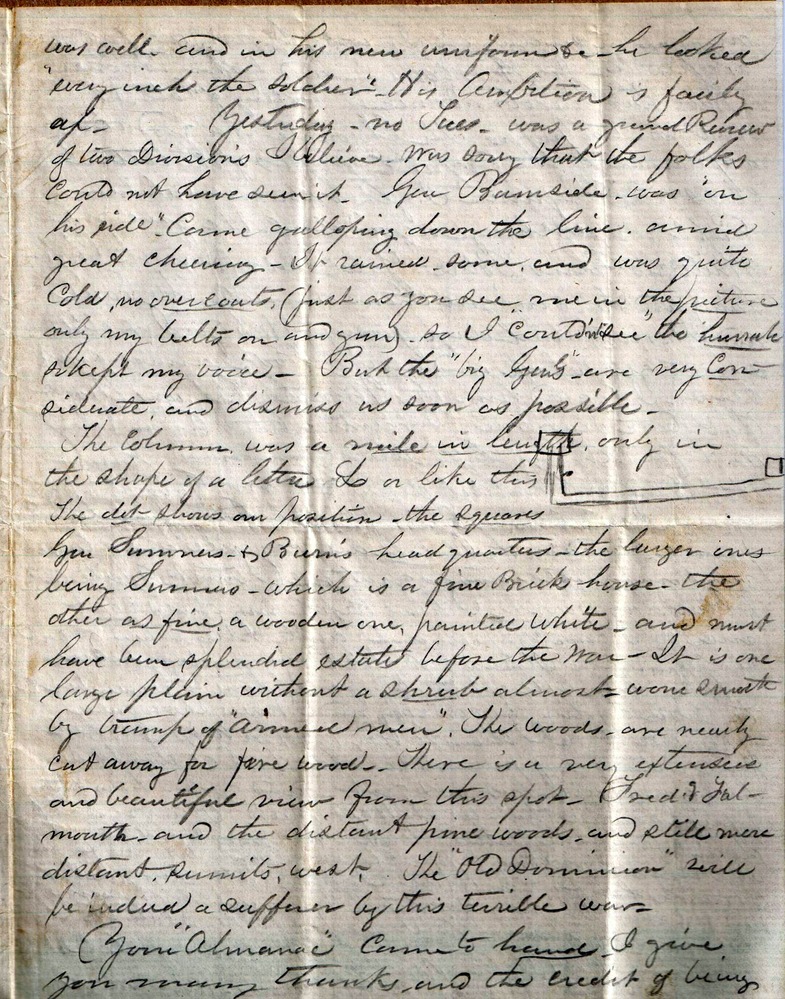 was well and in his new uniform &c he looked
"every inch the soldier". His Ambition is fairly
up - Yesterday - no Tues. was a grand Review
of two Divisions I believe. Was sorry that the folks
could not have seen it. Gen Burnside was "on
his ride". Came galloping down the line. amid
great cheering - It rained some, and was quite
Cold, no overcoats, (just as you see me in the picture
only my belts on and gun) so I "couldn't see" the hurrah
so kept my voice - But the "big Gen's" are very Con-
siderate, and dismiss us soon as possible -
The Column was a mile in length, only in
the shape of a letter L or like this
The dot shows our position - the squares
Gen Sumners & Burns headquarters - the larger ones
being Sumners - which is a fine Brick house - the
other as fine, a wooden one, painted white - and must
have been splendid estate before the War - It is one
large plain without a shrub almost - worn smooth
by tramp of "armed men". The woods are nearly
cut away for fire wood - There is a very extensive
and beautiful view from this spot - Fred'g Fal-
mouth - and the distant pine woods and still more
distant, summits, west. The "Old Dominion" will
be indeed a sufferer by this terrible war -
Your "Almanac" came to hand I give
you many thanks, and the credit of being